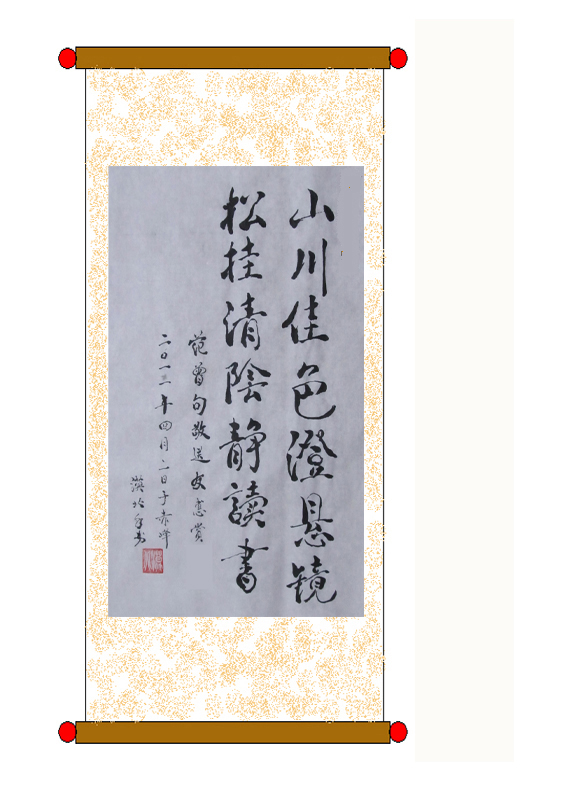 山川佳色澄悬镜
松挂清陰静讀書
范曾句敬送友惠赏
二〇一三年四月二日于赤峰